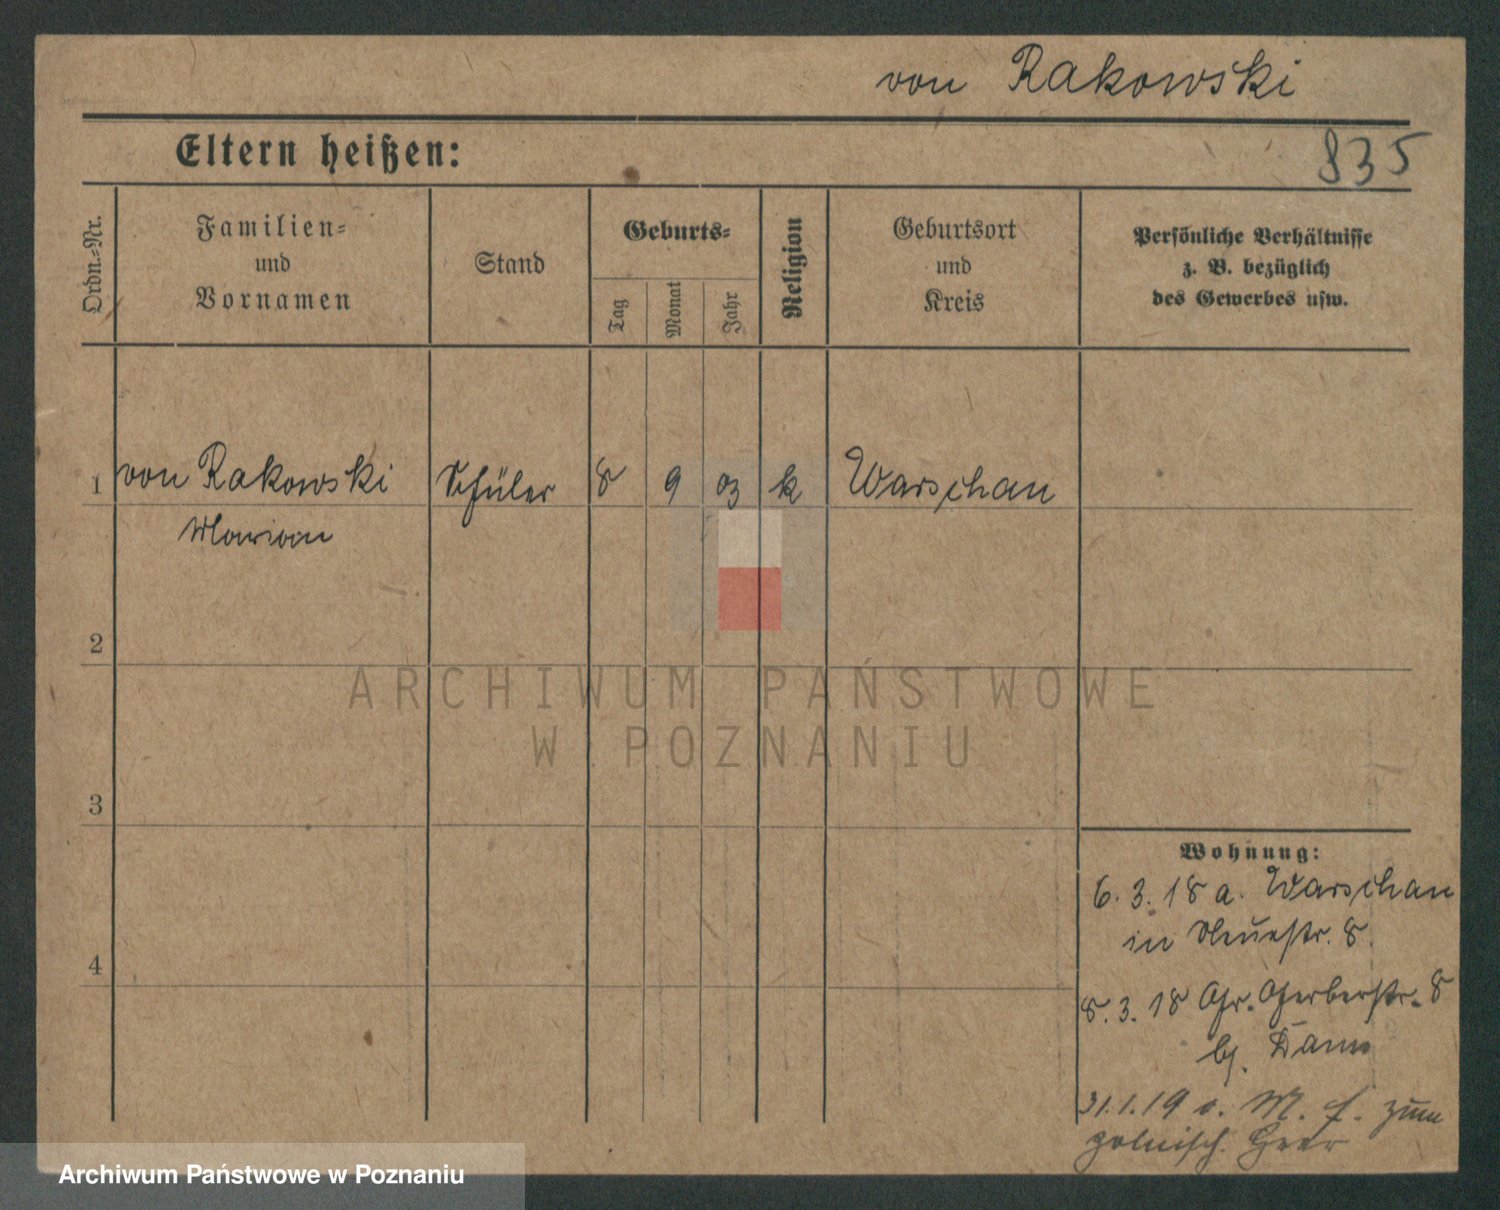 von Rakowski
835
Eltern heißen:
Ordn.-Nr.
Familien-
und
Vornamen
Stand
Geburts-
Tag
Monat
Jahr
Religion
Geburtsort
und
Kreis
Persönliche Verhältnisse
z. B. bezüglich
des Gewerbes usw.
1 von Rakowski Schüler 8 9 03 k Warschau
Marian
2
ARCHIWUM PAŃSTWOWE
W POZNANIU
3
Wohnung:
6. 3. 18 a. Warschau
in Neuestr. 8.
4
8. 3. 18 Gr. Gerberstr. 8
bj.
31.1.19 zum
polnisch. Heer
Archiwum Państwowe w Poznaniu